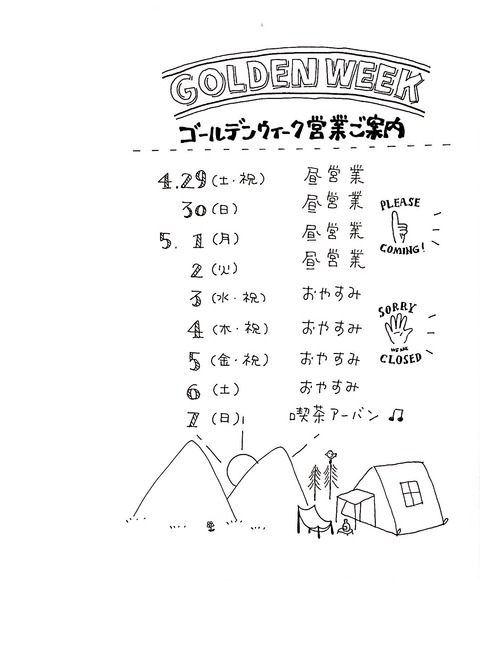 GOLDEN WEEK
ゴールデンウィーク営業ご案内
4.29(土・祝) 昼営業
30(日) 昼営業
5. 1(月) 昼営業
2(火) 昼営業
PLEASE
COMING!
3(水・祝) おやすみ
4(木・祝) おやすみ
5(金・祝) おやすみ
6(土) おやすみ
SORRY
WE ARE
CLOSED
7(日) 喫茶アーバン♫